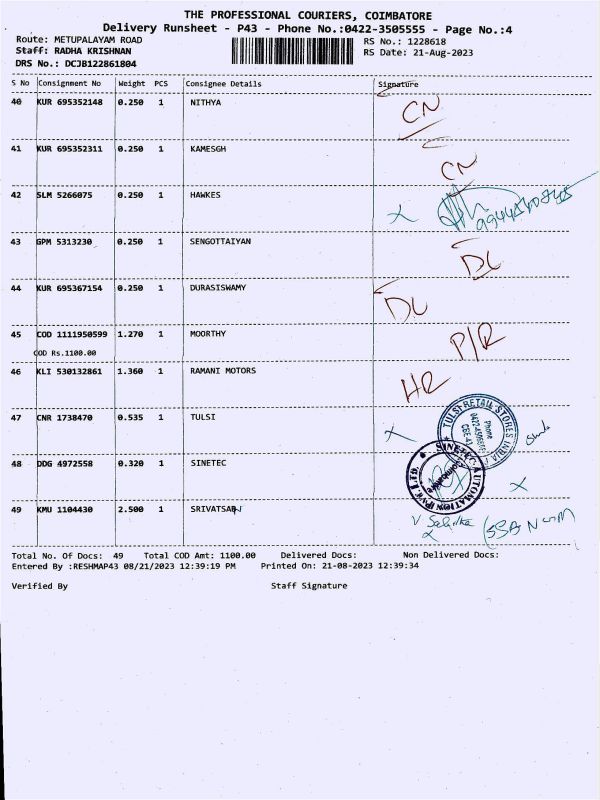 THE PROFESSIONAL COURIERS, COIMBATORE
Delivery Runsheet - P43 - Phone No.:0422-3505555 - Page No.:4
Route: METUPALAYAM ROAD RS No.: 1228618
Staff: RADHA KRISHNAN RS Date: 21-Aug-2023
DRS No.: DCJB122861804
S No Consignment No Weight PCS Consignee Details Signature
40 KUR 695352148 0.250 1 NITHYA CN
41 KUR 695352311 0.250 1 KAMESGH CN
42 SLM 5266075 0.250 1 HAWKES X
43 GPM 5313230 0.250 1 SENGOTTAIYAN DL
44 KUR 695367154 0.250 1 DURASISWAMY DL
45 COD 1111950599 1.270 1 MOORTHY P/R
COD Rs.1100.00
46 KLI 530132861 1.360 1 RAMANI MOTORS
47 CNR 1738470 0.535 1 TULSI X TULSI RETAIL STORES INDIA Phone
48 DDG 4972558 0.320 1 SINETEC SINETEC AUTOMATION PVT LTD. X
49 KMU 1104430 2.500 1 SRIVATSAN
Total No. Of Docs: 49 Total COD Amt: 1100.00 Delivered Docs: Non Delivered Docs:
Entered By :RESHMAP43 08/21/2023 12:39:19 PM Printed On: 21-08-2023 12:39:34
Verified By Staff Signature